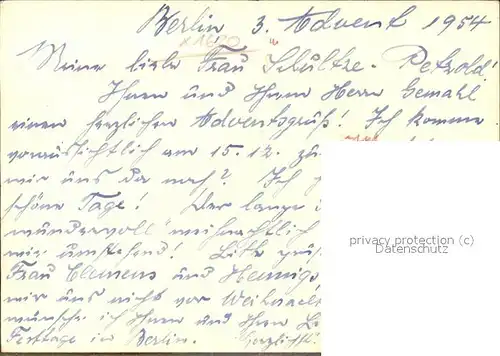 Berlin 3. Advent 1954
Meine liebe Frau Schultze-Petzold!
Ihnen und Ihrem Herrn Gemahl
einen herzlichen Adventsgruß! Ich komme
voraussichtlich am 15.12. zu
wir uns da noch? Ich
schöne Tage! Der lange
wundervoll weihnachtlich
wie umstehend! Bitte grüß
Frau Clemens und Hennigs
wir uns nicht vor Weihnach
wünsche ich Ihnen und Ihren
Festtage in Berlin. Herzlichst
privacy protection (c)
Datenschutz